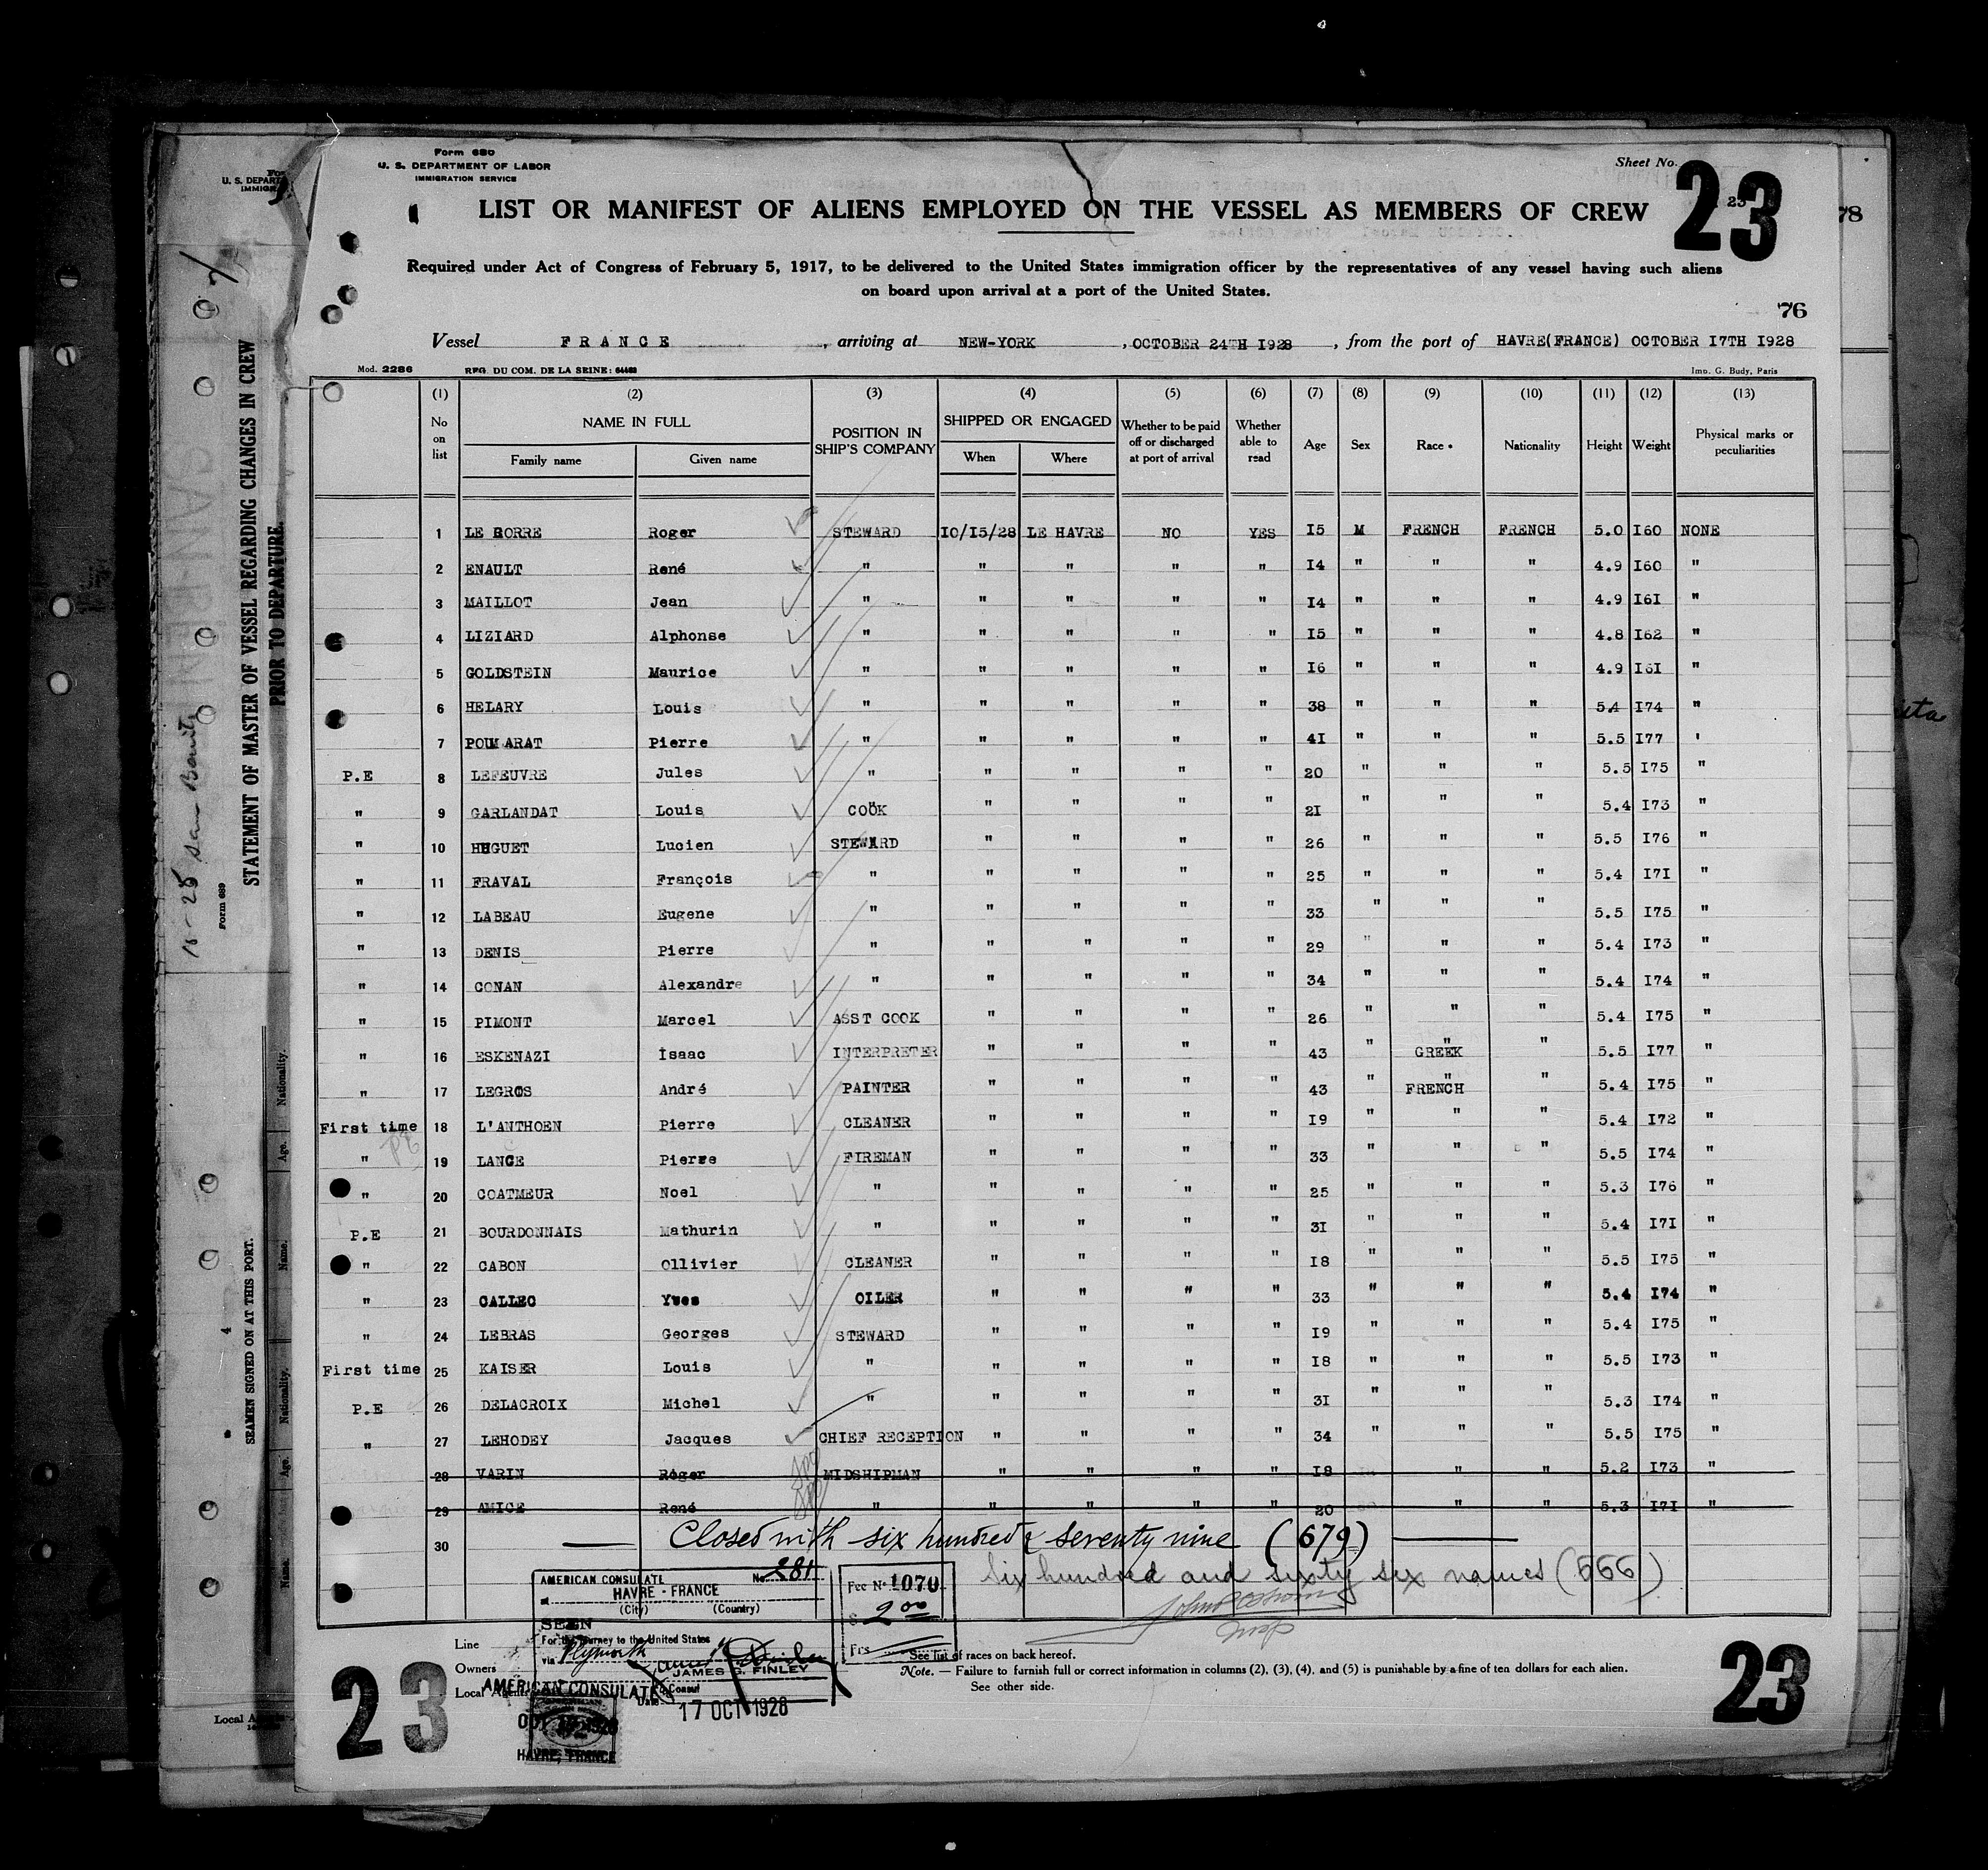 Form 680
U. S. DEPARTMENT OF LABOR
IMMIGRATION SERVICE
Sheet No. 23
23
LIST OR MANIFEST OF ALIENS EMPLOYED ON THE VESSEL AS MEMBERS OF CREW
78
Required under Act of Congress of February 5, 1917, to be delivered to the United States immigration officer by the representatives of any vessel having such aliens
on board upon arrival at a port of the United States.
76
Vessel FRANCE, arriving at NEW-YORK, OCTOBER 24TH I928, from the port of HAVRE(FRANCE) OCTOBER I7TH I928
Mod. 2286 REG. DU COM. DE LA SEINE: Imp. G. Budy, Paris
(1) (2) (3) (4) (5) (6) (7) (8) (9) (10) (11) (12) (13)
No on list NAME IN FULL Family name Given name POSITION IN SHIP'S COMPANY SHIPPED OR ENGAGED When Where Whether to be paid off or discharged at port of arrival Whether able to read Age Sex Race Nationality Height Weight Physical marks or peculiarities
1 LE GORRE Roger STEWARD I0/I5/28 LE HAVRE NO YES I5 M FRENCH FRENCH 5.0 I60 NONE
2 ENAULT René " " " " " I4 " " " 4.9 I60 "
3 MAILLOT Jean " " " " " I4 " " " 4.9 I6I "
4 LIZIARD Alphonse " " " " " I5 " " " 4.8 I62 "
5 GOLDSTEIN Maurice " " " " " I6 " " " 4.9 I6I "
6 HELARY Louis " " " " " 38 " " " 5.4 I74 "
7 POUMARAT Pierre " " " " " 4I " " " 5.5 I77 '
P.E 8 LEFEUVRE Jules " " " " " 20 " " " 5.5 I75 "
" 9 GARLANDAT Louis COOK " " " " 2I " " " 5.4 I73 "
" 10 HUGUET Lucien STEWARD " " " " 26 " " " 5.5 I76 "
" 11 FRAVAL François " " " " " 25 " " " 5.4 I7I "
" 12 LABEAU Eugene " " " " " 33 " " " 5.5 I75 "
" 13 DENIS Pierre " " " " " 29 " " " 5.4 I73 "
" 14 CONAN Alexandre " " " " " 34 " " " 5.4 I74 "
" 15 PIMONT Marcel ASST COOK " " " " 26 " " " 5.4 I75 "
" 16 ESKENAZI Isaac INTERPRETER " " " " 43 " GREEK " 5.5 I77 "
" 17 LEGROS André PAINTER " " " " 43 " FRENCH " 5.4 I75 "
First time 18 L'ANTHOEN Pierre CLEANER " " " " I9 " " " 5.4 I72 "
" 19 LANCE Pierre FIREMAN " " " " 33 " " " 5.5 I74 "
" 20 COATMEUR Noel " " " " " 25 " " " 5.3 I76 "
P.E 21 BOURDONNAIS Mathurin " " " " " 3I " " " 5.4 I7I "
" 22 CABON Ollivier CLEANER " " " " I8 " " " 5.5 I75 "
" 23 CALLEC Yves OILER " " " " 33 " " " 5.4 I74 "
" 24 LEBRAS Georges STEWARD " " " " I9 " " " 5.4 I75 "
First time 25 KAISER Louis " " " " " I8 " " " 5.5 I73 "
P.E 26 DELACROIX Michel " " " " " 3I " " " 5.3 I74 "
" 27 LEHODEY Jacques CHIEF RECEPTION " " " " 34 " " " 5.5 I75 "
28 VARIN Roger MIDSHIPMAN " " " " I8 " " 5.2 I73 "
29 AMICE René " " " " " 20 " " 5.3 I7I "
30 Closed with six hundred & seventy nine (679)
Six hundred and sixty six names (666)
AMERICAN CONSULATE No 281
at HAVRE - FRANCE
(City) (Country)
SEEN
For the journey to the United States
via Plymouth
JAMES G. FINLEY
Consul
Date 17 OCT 1928
Fee No 1070
$ 2 00
Frs
Line
Owners
Local Agents
AMERICAN CONSULATE
HAVRE, FRANCE
See list of races on back hereof.
Note. — Failure to furnish full or correct information in columns (2), (3), (4), and (5) is punishable by a fine of ten dollars for each alien.
See other side.
23
23
U. S. DEPART
IMMIGR
STATEMENT OF MASTER OF VESSEL REGARDING CHANGES IN CREW
PRIOR TO DEPARTURE.
Form 689
SEAMEN SIGNED ON AT THIS PORT.
Nationality.
Age.
Name.
Nationality.
Age.
Name.